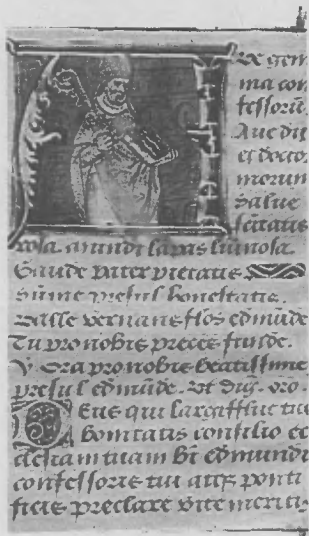 Ve gem
ma con
fessorū.
Aue dux
et docto.
morum
Salue
scitatis
rosa. mundi lāpas lūinosa.
Gaude pater pietatis
Sūme presul honestatis.
Valle vernans flos edmūde
Tu pro nobis preces fūde.
V Ora pro nobis beatissime
presul edmūde. Vt dig. oro.
DEus qui largifflue tue
bonitatis consilio ec
clesiam tuam bti edmundi
confessoris tui atqȝ ponti
ficis preclare vite meritis